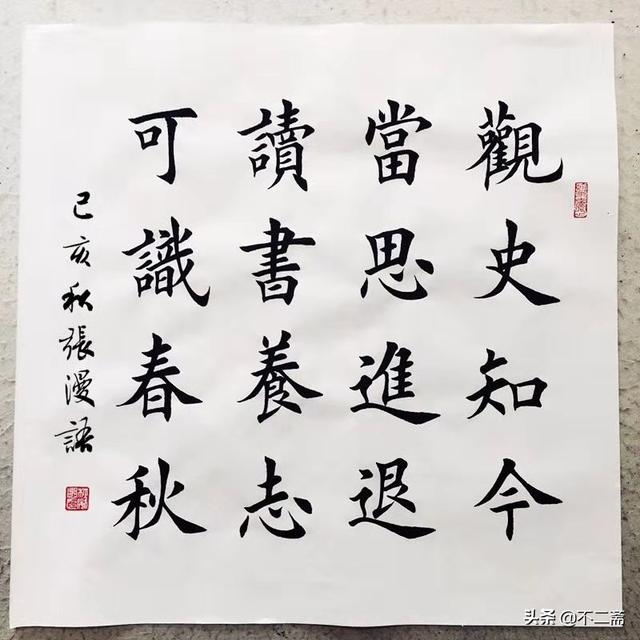 觀史知今
當思進退
讀書養志
可識春秋
己亥秋張漫語
头条 @不二斋